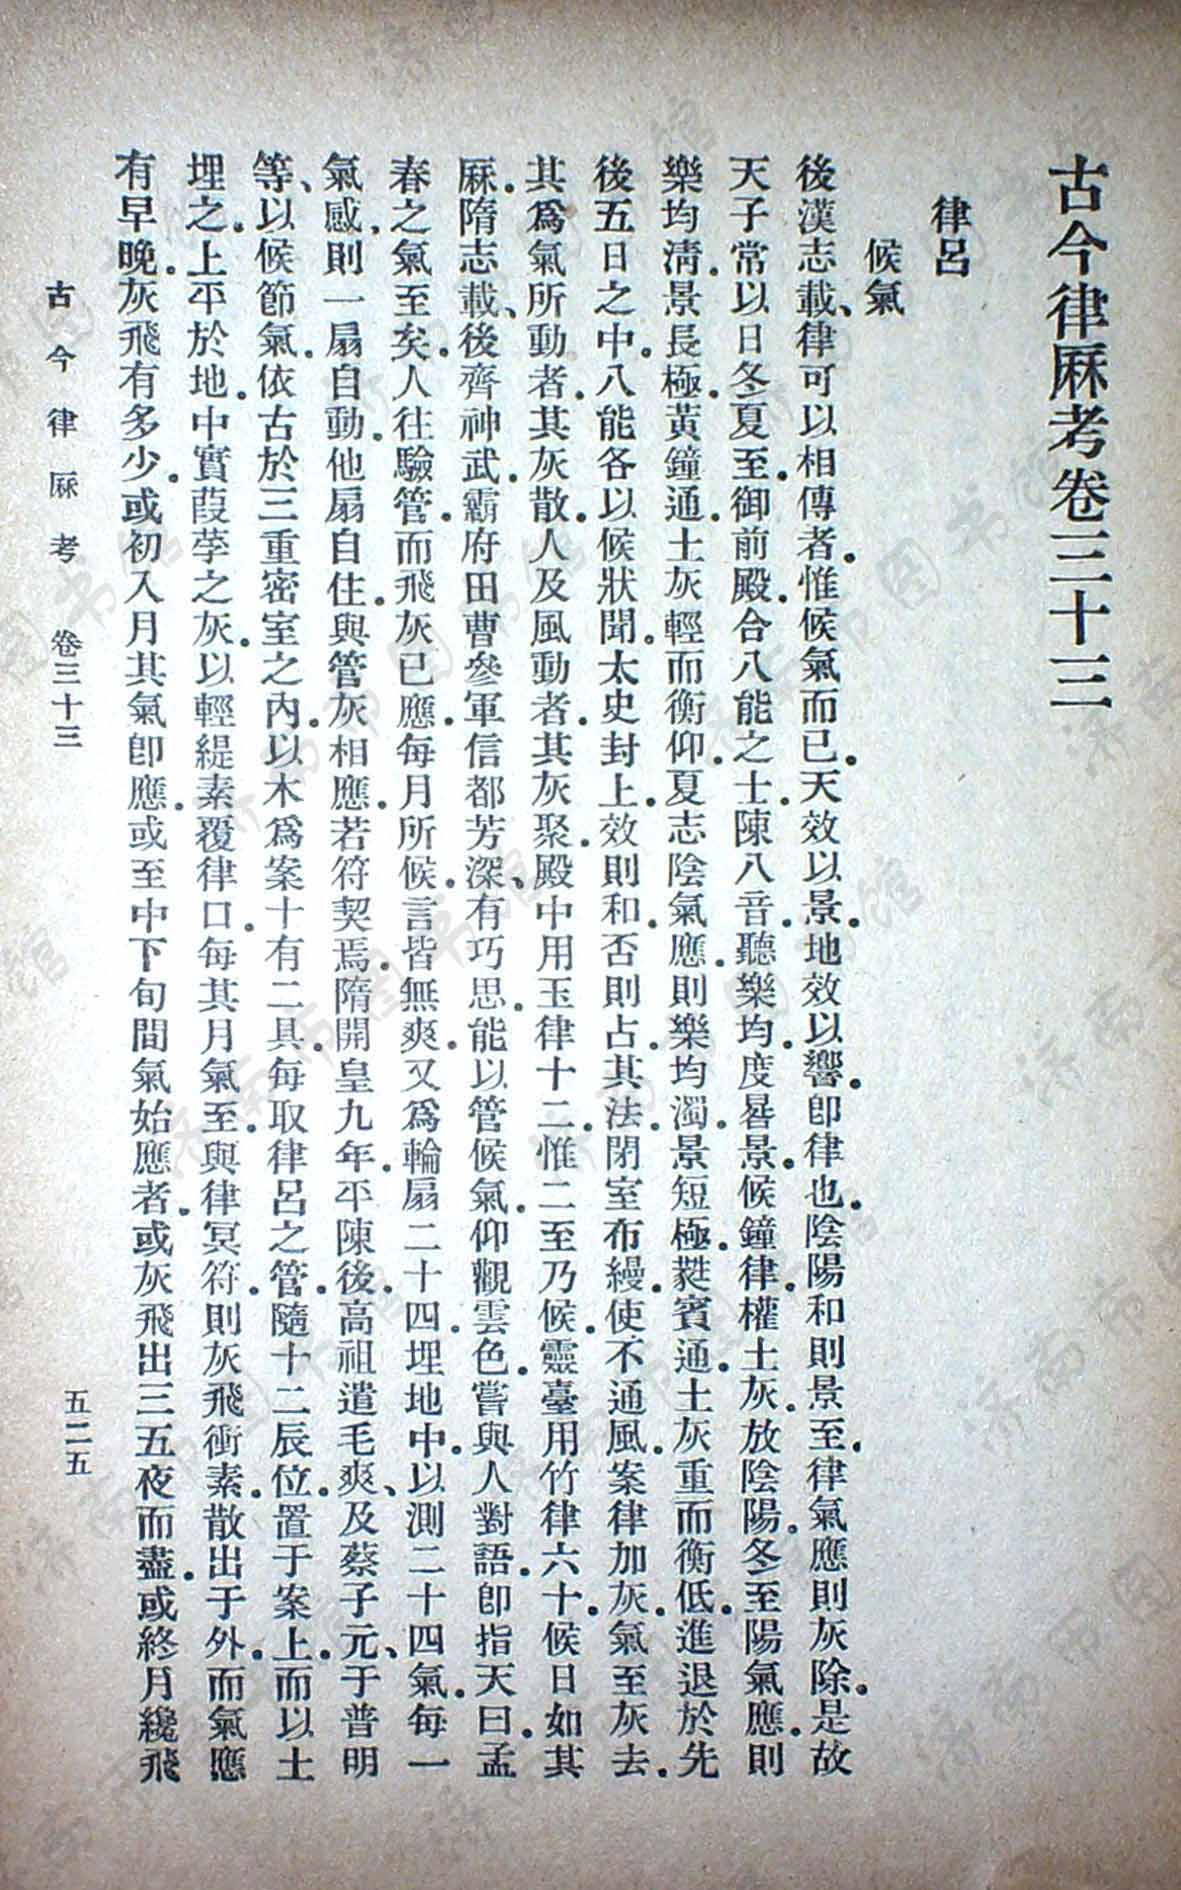 古今律厤考卷三十三
律呂
候氣
後漢志載、律可以相傳者。惟候氣而已。天效以景。地效以響。卽律也。陰陽和則景至。律氣應則灰除。是故
天子常以日冬夏至。御前殿。合八能之士。陳八音。聽樂均。度晷景。候鐘律。權土灰。放陰陽。冬至陽氣應。則
樂均清。景長極。黃鐘通。土灰輕而衡仰。夏志陰氣應。則樂均濁。景短極。蕤賓通。土灰重而衡低。進退於先
後五日之中。八能各以候狀聞。太史封上。效則和。否則占。其法。閉室布縵。使不通風。案律加灰。氣至灰去。
其爲氣所動者。其灰散。人及風動者。其灰聚。殿中用玉律十二。惟二至乃候。靈臺用竹律六十。候日如其
厤。隋志載、後齊神武。霸府田曹參軍信都芳。深、有巧思。能以管候氣。仰觀雲色。嘗與人對語。卽指天曰。孟
春之氣至矣。人往驗管。而飛灰已應。每月所候。言皆無爽。又爲輪扇二十四。埋地中。以測二十四氣。每一
氣感、則一扇自動。他扇自住。與管灰相應。若符契焉。隋開皇九年。平陳後。高祖遣毛爽、及蔡子元、于普明
等、以候節氣。依古於三重密室之內。以木爲案。十有二具。每取律呂之管。隨十二辰位。置于案上。而以土
埋之。上平於地。中實葭莩之灰。以輕緹素覆律口。每其月氣至。與律冥符。則灰飛衝素。散出于外。而氣應
有早晚。灰飛有多少。或初入月其氣卽應。或至中下旬間氣始應者。或灰飛出三五夜而盡。或終月纔飛
古今律厤考 卷三十三
五二五